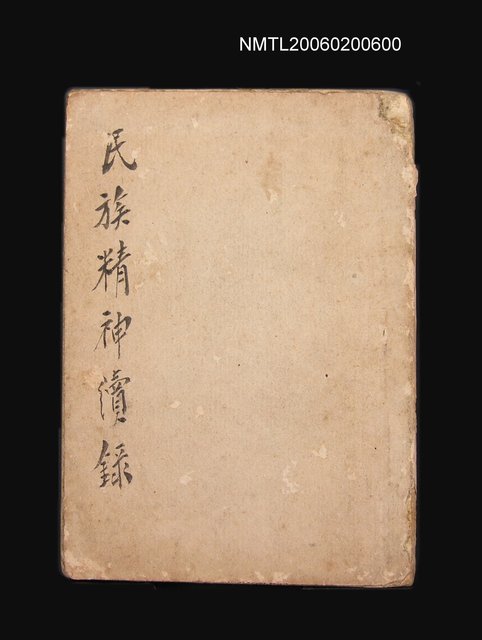 NMTL20060200600
民族精神續錄